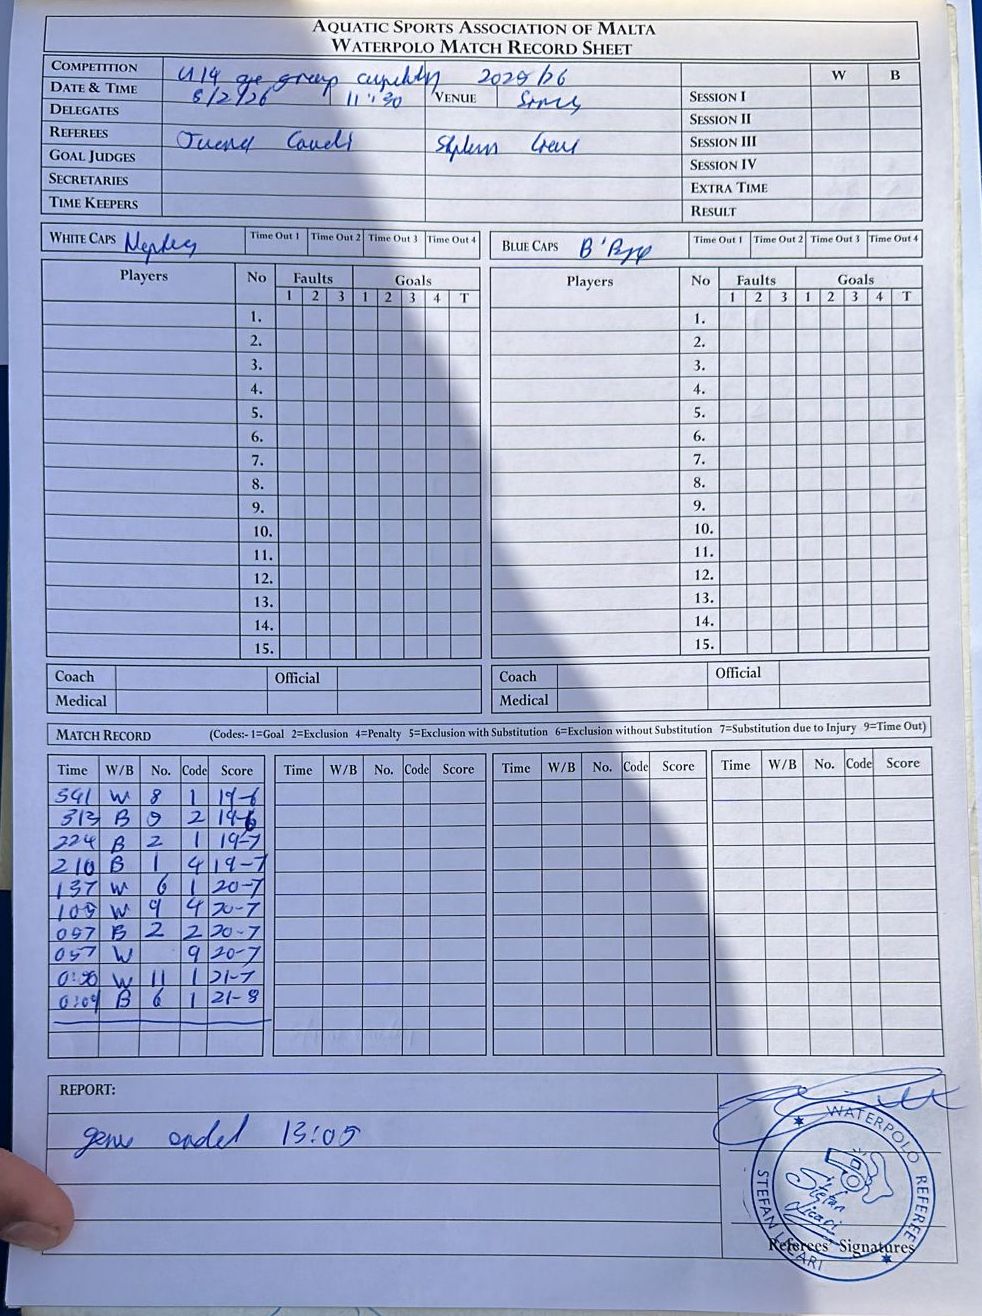 AQUATIC SPORTS ASSOCIATION OF MALTA
WATERPOLO MATCH RECORD SHEET
COMPETITION U14 age group 2025/26
DATE & TIME 8/2/26 11:30 VENUE
DELEGATES
REFEREES
GOAL JUDGES
SECRETARIES
TIME KEEPERS
W B
SESSION I
SESSION II
SESSION III
SESSION IV
EXTRA TIME
RESULT
WHITE CAPS Time Out 1 Time Out 2 Time Out 3 Time Out 4
Players No Faults Goals
1 2 3 1 2 3 4 T
1.
2.
3.
4.
5.
6.
7.
8.
9.
10.
11.
12.
13.
14.
15.
Coach Official
Medical
BLUE CAPS Time Out 1 Time Out 2 Time Out 3 Time Out 4
Players No Faults Goals
1 2 3 1 2 3 4 T
1.
2.
3.
4.
5.
6.
7.
8.
9.
10.
11.
12.
13.
14.
15.
Coach Official
Medical
MATCH RECORD (Codes:- 1=Goal 2=Exclusion 4=Penalty 5=Exclusion with Substitution 6=Exclusion without Substitution 7=Substitution due to Injury 9=Time Out)
Time W/B No. Code Score Time W/B No. Code Score Time W/B No. Code Score Time W/B No. Code Score
541 W 8 1 19-6
313 B 9 2 19-6
224 B 2 1 19-7
210 B 1 4 19-7
137 W 6 1 20-7
109 W 9 4 20-7
057 B 2 2 20-7
057 W 9 20-7
0:30 W 11 1 21-7
0:09 B 6 1 21-8
REPORT:
game ended 13:05
WATERPOLO REFEREE
STEFAN LICARI
Stefan
Licari
Referees' Signatures